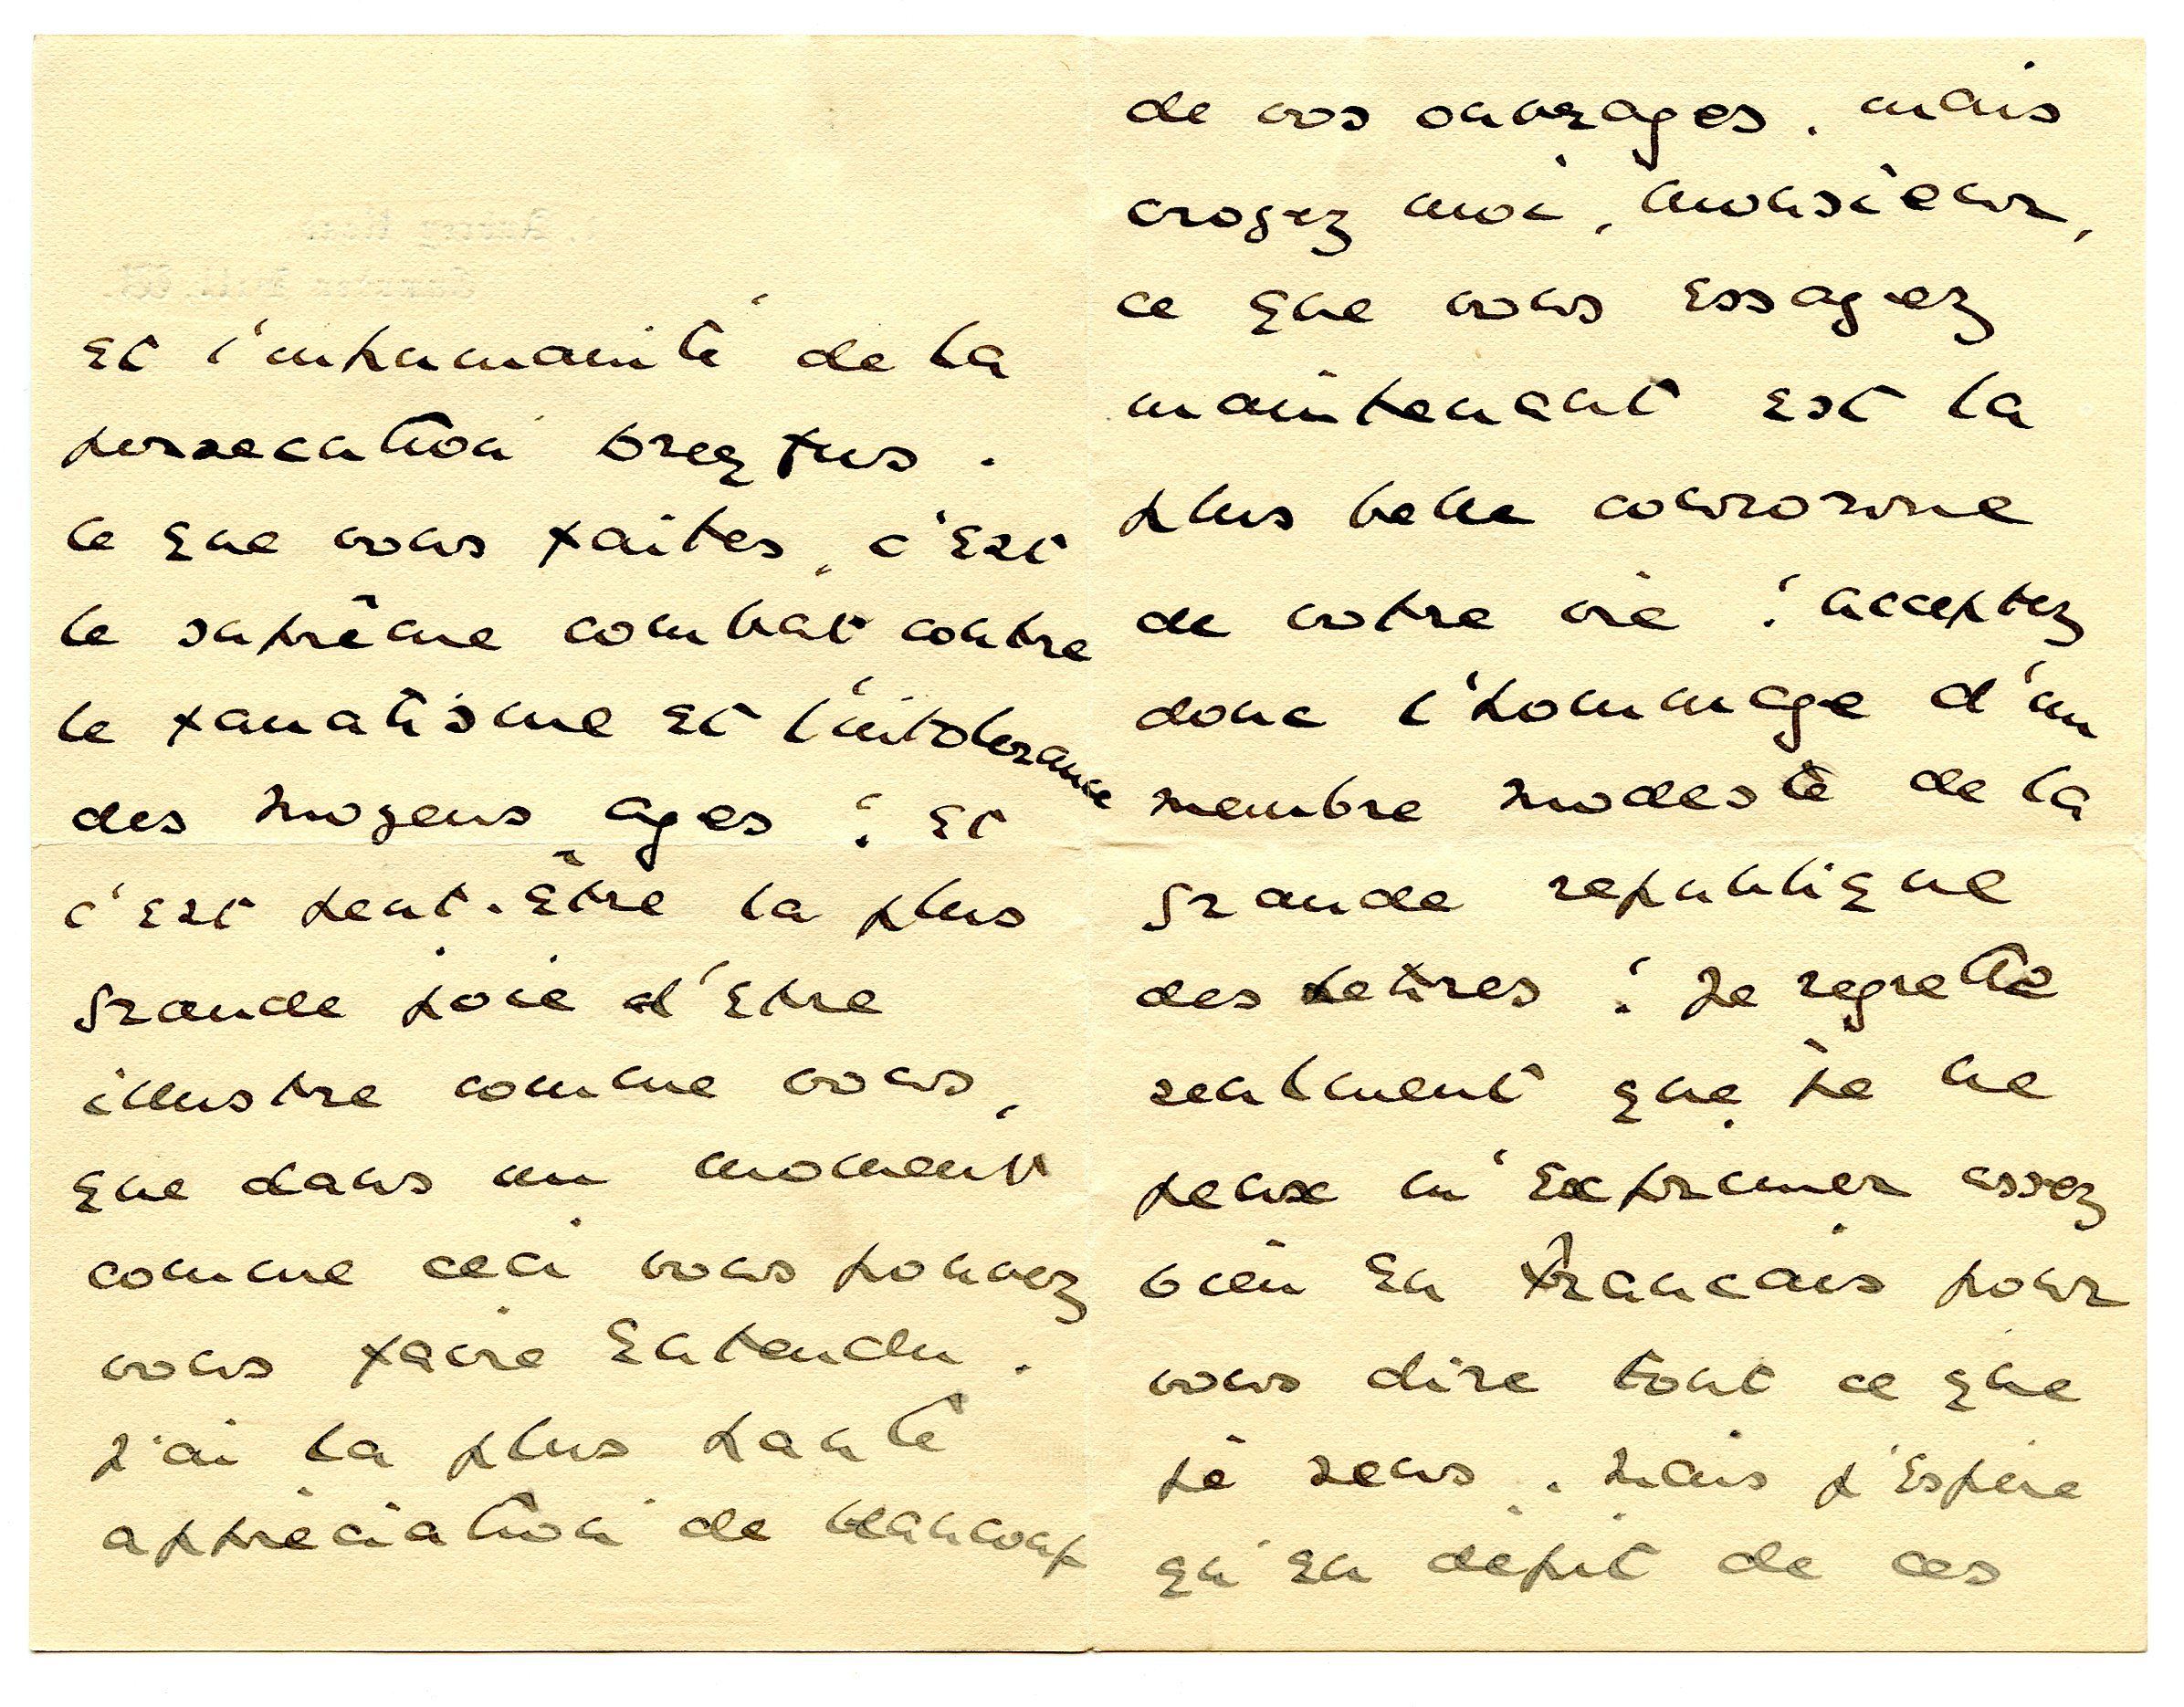 et l'inhumanité de la
persecution Dreyfus.
Ce que vous faites, c'est
le suprême combat contre
le fanatisme et l'intolerance
des moyens ages : et
c'est peut-être la plus
grande joie d'etre
illustre comme vous,
que dans un moment
comme ceci vous pouvez
vous faire entendu.
J'ai la plus haute
appréciation de beaucoup
de vos ouvrages. mais
croyez moi, monsieur,
ce que vous essayez
maintenant est la
plus belle couronne
de votre vie : acceptez
donc l'hommage d'un
membre modeste de la
grande republique
des lettres : Je regrette
seulment que je ne
peux m'exprimer assez
bien en francais pour
vous dire tout ce que
je sens. Mais j'espère
qu'en dépit de ces